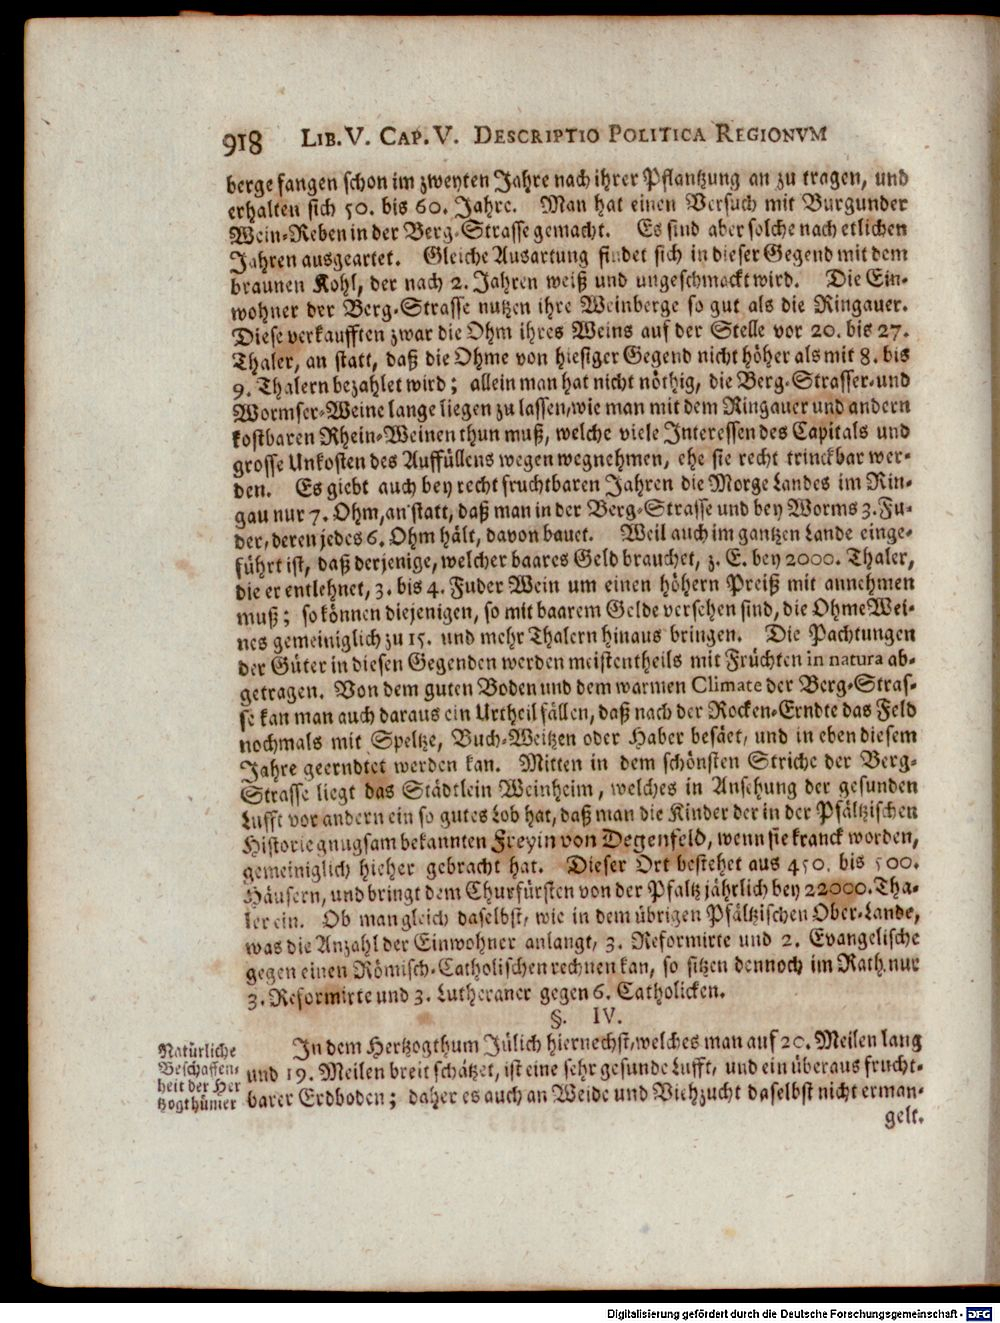 918 LIB. V. CAP. V. DESCRIPTIO POLITICA REGIONVM
berge fangen schon im zweyten Jahre nach ihrer Pflantzung an zu tragen, und
erhalten sich 50. bis 60. Jahre. Man hat einen Versuch mit Burgunder
Wein-Reben in der Berg-Strasse gemacht. Es sind aber solche nach etlichen
Jahren ausgeartet. Gleiche Ausartung findet sich in dieser Gegend mit dem
braunen Kohl, der nach 2. Jahren weiß und ungeschmackt wird. Die Ein-
wohner der Berg-Strasse nutzen ihre Weinberge so gut als die Ringauer.
Diese verkaufften zwar die Ohm ihres Weins auf der Stelle vor 20. bis 27.
Thaler, an statt, daß die Ohme von hiesiger Gegend nicht höher als mit 8. bis
9. Thalern bezahlet wird; allein man hat nicht nöthig, die Berg-Strasser-und
Wormser-Weine lange liegen zu lassen, wie man mit dem Ringauer und andern
kostbaren Rhein-Weinen thun muß, welche viele Interessen des Capitals und
grosse Unkosten des Auffüllens wegen wegnehmen, ehe sie recht trinckbar wer-
den. Es giebt auch bey recht fruchtbaren Jahren die Morge Landes im Rin-
gau nur 7. Ohm, an statt, daß man in der Berg-Strasse und bey Worms 3. Fu-
der, deren jedes 6. Ohm hält, davon bauet. Weil auch im gantzen Lande einge-
führt ist, daß derjenige, welcher baares Geld brauchet, z. E. bey 2000. Thaler,
die er entlehnet, 3. bis 4. Fuder Wein um einen höhern Preiß mit annehmen
muß; so können diejenigen, so mit baarem Gelde versehen sind, die Ohme Wei-
nes gemeiniglich zu 15. und mehr Thalern hinaus bringen. Die Pachtungen
der Güter in diesen Gegenden werden meistentheils mit Früchten in natura ab-
getragen. Von dem guten Boden und dem warmen Climate der Berg-Stras-
se kan man auch daraus ein Urtheil fällen, daß nach der Rocken-Erndte das Feld
nochmals mit Speltze, Buch-Weitzen oder Haber besäet, und in eben diesem
Jahre geerndtet werden kan. Mitten in dem schönsten Striche der Berg-
Strasse liegt das Städtlein Weinheim, welches in Ansehung der gesunden
Lufft vor andern ein so gutes Lob hat, daß man die Kinder der in der Pfältzischen
Historie gnugsam bekannten Freyin von Degenfeld, wenn sie kranck worden,
gemeiniglich hieher gebracht hat. Dieser Ort bestehet aus 450. bis 500.
Häusern, und bringt dem Churfürsten von der Pfaltz jährlich bey 22000. Tha-
ler ein. Ob man gleich daselbst, wie in dem übrigen Pfältzischen Ober-Lande,
was die Anzahl der Einwohner anlangt, 3. Reformirte und 2. Evangelische
gegen einen Römisch-Catholischen rechnen kan, so sitzen dennoch im Rath nur
3. Reformirte und 3. Lutheraner gegen 6. Catholicken.
§. IV.
Natürliche
Beschaffen-
heit der Her
tzogthümer
In dem Hertzogthum Jülich hiernechst, welches man auf 20. Meilen lang
und 19. Meilen breit schätzet, ist eine sehr gesunde Lufft, und ein überaus frucht-
barer Erdboden; daher es auch an Weide und Viehzucht daselbst nicht erman-
gelt.
Digitalisierung gefördert durch die Deutsche Forschungsgemeinschaft - DFG